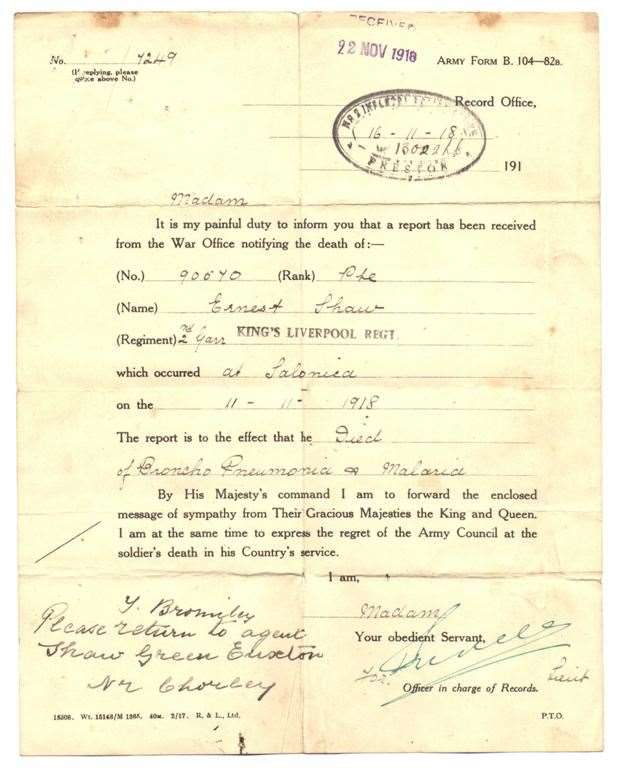 RECEIVED
22 NOV 1918
No. 17249
ARMY FORM B. 104—82B.
(If replying, please
quote above No.)
Record Office,
16 - 11 - 18
PRESTON
191
Madam
It is my painful duty to inform you that a report has been received
from the War Office notifying the death of:—
(No.) 90570 (Rank) Pte
(Name) Ernest Shaw
(Regiment) 2nd Garr KING'S LIVERPOOL REGT.
which occurred at Salonica
on the 11 - 11 - 1918
The report is to the effect that he Died
of Broncho Pneumonia & Malaria
By His Majesty's command I am to forward the enclosed
message of sympathy from Their Gracious Majesties the King and Queen.
I am at the same time to express the regret of the Army Council at the
soldier's death in his Country's service.
I am,
Madam
Your obedient Servant,
for Lieut
Officer in charge of Records.
T. Bromiley
Please return to agent
Shaw Green Euxton
Nr Chorley
15508. Wt. 15148/M 1365. 40M. 2/17. R. & L., Ltd.
P.T.O.